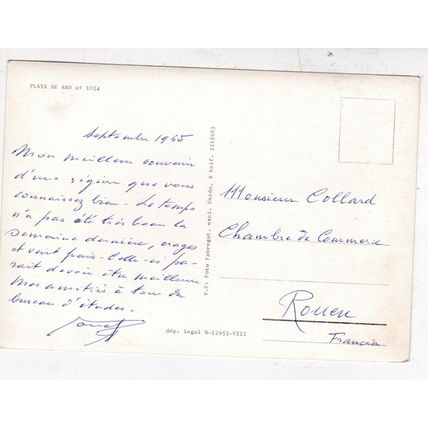 PLAYA DE ARO nº 1054
Septembre 1965
Mon meilleur souvenir
d'une région que vous
connaissez bien. Le temps
n'a pas été très beau la
semaine dernière, orages
et vent frais. Celle-ci pa-
rait devoir être meilleure
Mes amitiés à tous du
bureau d'études.
V.C: Foto Fabregat. excl. Unido, 9 telf. 2215003
Monsieur Collard
Chambre de Commerce
Rouen
Francia
dép. legal B-12955-VIII